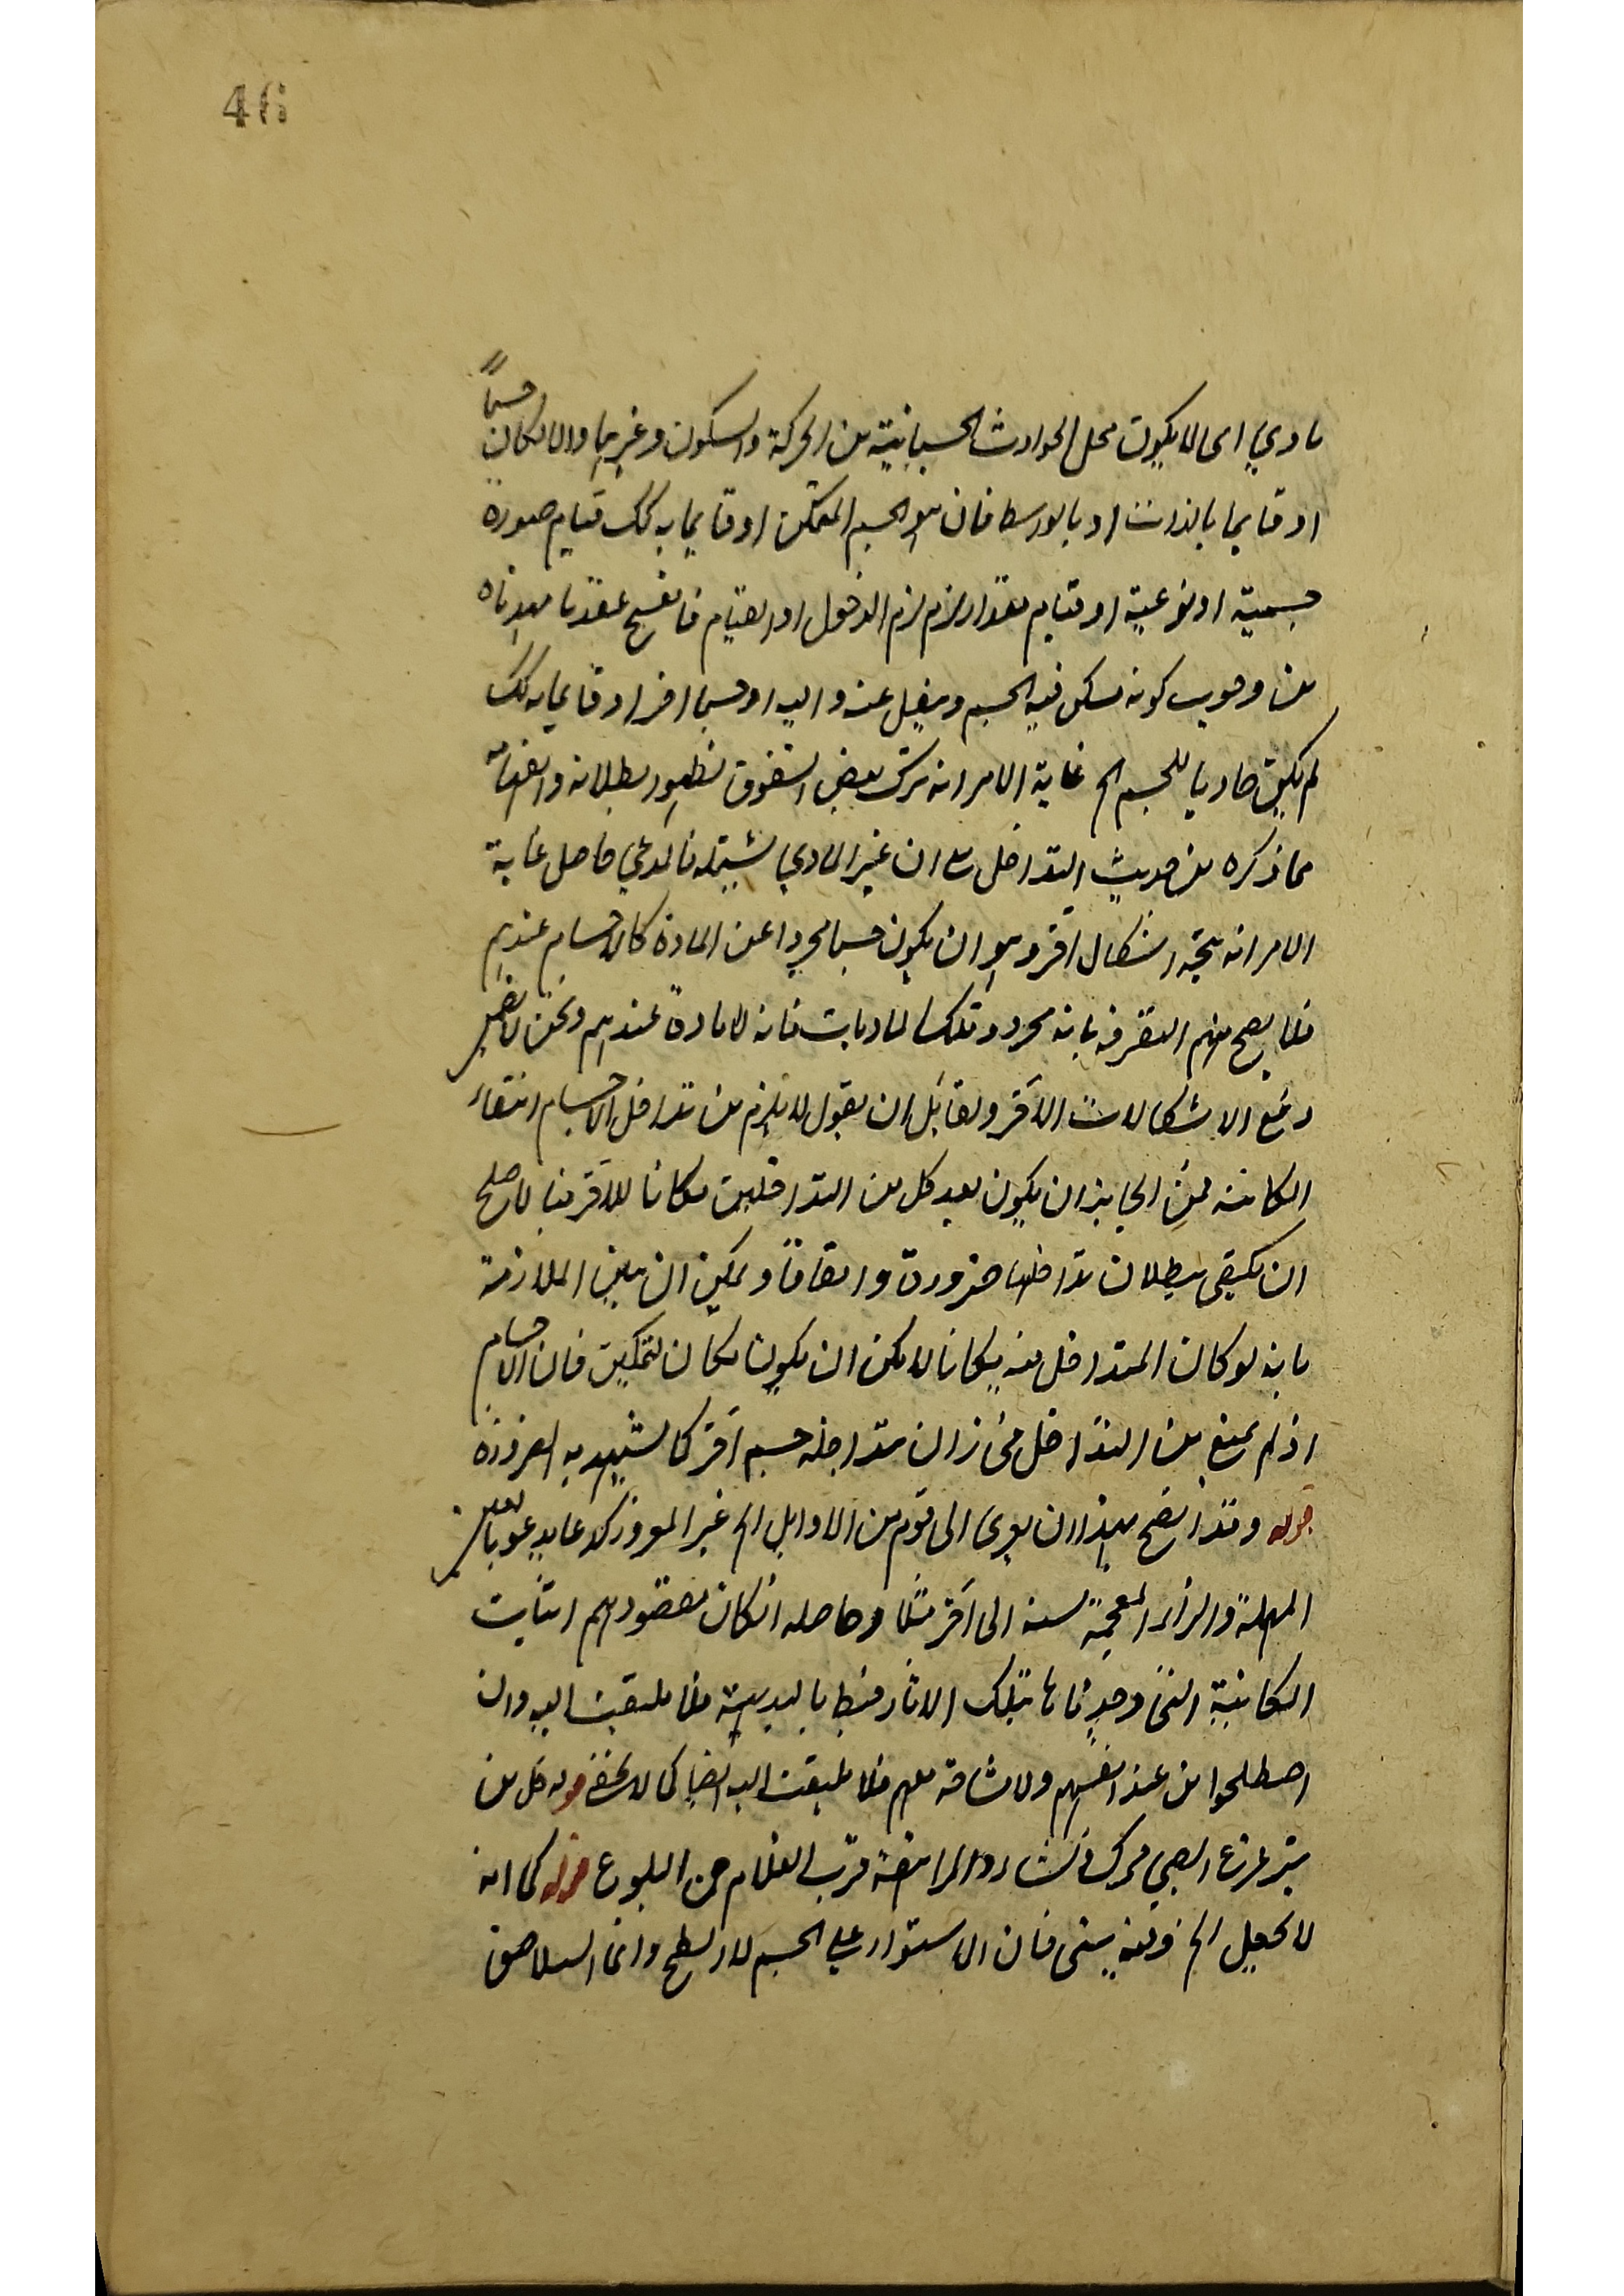 46
مادي اي لا يكون محل الحوادث الجسمانية من الحركة والسكون وغيرهما والا لكان جسما
او قايما بالذات او بالواسطة فان هو الجسم المتمكن او قايما به كك قيام صورة
جسمية او نوعية او قيام مقدار لزم لزم الدخول او القيام فانفسخ عقد ما مهدناه
من وجوب كونه يسكن فيه الجسم وينتقل عنه واليه او جسما اخر او قايما به كك
لم يكن حاويا للجسم الخ غاية الامر انه ترك بعض الشقوق لظهور بطلانه وانفهامه
مما ذكره من حديث التداخل مع ان غير المادي يشمله فالمدعي حاصل غاية
الامر انه يتجه اشكال آخر وهو ان يكون جسما مجردا عن المادة كالاجسام عندهم
فلا يصح منهم التعرف بانه مجرد وتلك الماديات فانه لا مادة عندهم ونحن لا نضمن
دفع الاشكالات الآخر ولقائل ان يقول لا يلزم من تداخل الاجسام انتفاء
المكانية فمن الجايز ان يكون بعد كل من المتداخلين مكانا للآخر فيما لا صلح
ان يكتفي ببطلان تداخلها ضرورة واتفاقا ويمكن ان يبين الملازمة
بانه لو كان المتداخل فيه مكانا لا يمكن ان يكون مكان لمتمكن فان الاجسام
اذ لم يمتنع من التداخل فجاز ان يتداخله جسم آخر كما يشهد به الضرورة
قوله وقد اتضح بهذا ان يعزى الى قوم من الاوايل الخ غير المعروز كدعا يدعو بالعين
المهملة والزاء المعجمة نسبه الى آخر مثلا وحاصله ان كان مقصودهم اثبات
المكانية التي وجدناها بتلك الاثار فبط بالبديهة فلا يلتفت اليه وان
اصطلحوا من عند انفسهم ولا مشاحة معهم فلا يلتفت اليه ايضا كما لا يخفى قوله كل من
يترعرع الصبي تحرك ونشا والمراهقة قرب الغلام من البلوغ قوله كما انه
لا يحصل الخ فيه شئ فان الاستواء على الجسم لا السطح وانما التلاصق